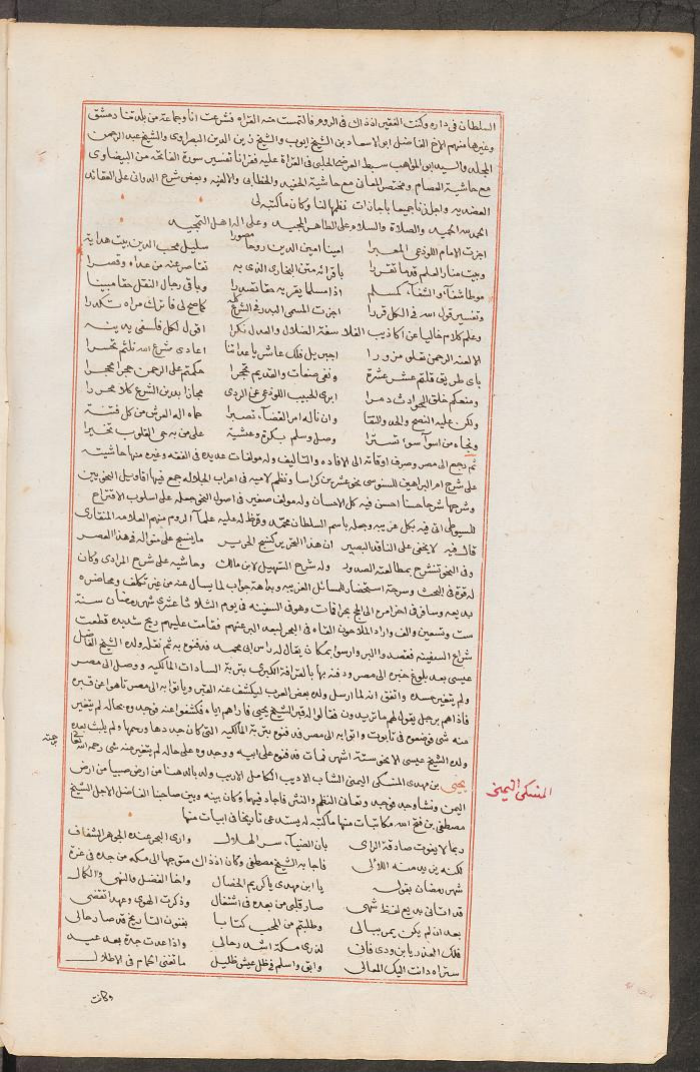 السلطان فى داره وكنت الفقير اذ ذاك فى الروم فالتمست منه القراة فشرعت انا وجماعة من بلدتنا دمشق
وغيرها منهم الاخ الفاضل ابو الاسعاد بن الشيخ ايوب والشيخ زين الدين البصراوى والشيخ عبد الرحمن
المجلد والسيد ابو المواهب سبط العرضى الحلبى فى القراة عليه فقرانا تفسير سورة الفاتحة من البيضاوى
مع حاشية العصام ومختصر المعانى مع حاشية الحفيد والخطابى والالفيه وبعض شرح الدوانى على العقائد
العضديه واجازنا جميعا باجازات نظمها لنا وكان ما كتبه لى
الحمد لله الحميد والصلاة والسلام على الطاهر المجيد وعلى اله اهل التمجيد
اجزت الامام اللوذعى المعبرا امينا امين الدين روحا مصورا سليل محب الدين بيت هداية
وبيت منار العلم قدما تقررا باقرائه متن البخارى الذى به تقاصر عنه من عداه وقصرا
موطا شفآء والشفآء كمسلم اذا مسلما يقربه حقا تصدرا وباقى رجال النقل حقا مبينا
وتفسير قول الله فى الكل قررا اجزت المسمى البدر فى الشرع كله كما صح لى فاترك مراء تكدرا
وعلم كلام خاليا عن اكاذيب الفلا سفة الضلال والعدل نكرا اقول لكل فلسفى يدينه
الا لعنة الرحمن تعلى مزورا اجبريل فلك عاشر يا عداتنا اعادى شرع الله نلتم تحسرا
باى طريق قلتم عشر عشرة ونفى صفات والقديم تحجرا حكمتم على الرحمن حجرا محجرا
ومنعكم خلق الحوادث دمرا ابرى الحبيب اللوذعى عن الردى مجازا بدين الشرع كلا محررا
ولكن عليه النصح والجد والتقا وان ناله امر القضآء تصبرا حماه اله العرش من كل فتنة
ونجاه من اسوآ سوء تسترا وصل وسلم بكرة وعشية على من به حى القلوب تخبرا
ثم رجع الى مصر وصرف اوقاته الى الافاده والتاليف وله مولفات عديده فى الفقه وغيره منها حاشيته
على شرح ام البراهين للسنوسى نحو عشرين كراسا ونظم لاميه فى اعراب الجلاله جمع فيها اقاويل النحويين
وشرحها شرحا حسنا احسن فيه كل الاحسان وله مولف صغير فى اصول النحو جعله على اسلوب الاقتراح
للسيوطى اتى فيه بكل غريبه وجعله باسم السلطان محمد وقرظ له عليه علمآء الروم منهم العلامه المنقارى
قال فيه لا يخفى على الناقد البصير ان هذا التحرير كنسج الحرير ما ينسج على منواله فى هذا العصر
وفى النحو تنشرح بمطالعته الصدور وله شرح التسهيل لابن مالك وحاشيه على شرح المرادى وكان
له قوة فى البحث وسرعة استحضار للمسائل الغريبه وبداهة جواب لما يسال عنه من غير تكلف ومحاضره
بديعه وسافر فى اخر امره الى الحج بحرا فمات وهو فى السفينه فى يوم الثلاثا عشرى شهر رمضان سنة
ست وتسعين والف واراد الملاحون القاه فى البحر لبعد البر عنهم فقامت عليهم ريح شديده قطعت
شراع السفينه فقصدوا البر وارسوا بمكان يقال له راس ابى محمد فدفنوه به ثم نقله ولده الشيخ الفاضل
عيسى بعد بلوغ خبره الى مصر ودفنه بها بالقرافة الكبرى بتربة السادات المالكيه ووصل الى مصر
ولم يتغير جسده واتفق انه لما ارسل ولده بعض العرب ليكشف عنه القبر وياتوا به الى مصر تاهوا عن قبره
فاذا هم برجل يقول لهم ما تريدون فقالوا له قبر الشيخ يحيى فاراهم اياه فكشفوا عنه فوجدوه بحاله لم يتغير
منه شى فوضعوه فى تابوت واتوا به الى مصر فدفنوه بتربة المالكيه التى كان جددها ورمها ولم يلبث بعده
ولده الشيخ عيسى الا نحو ستة اشهر فمات فدفنوه على ابيه ووجدوه على حاله لم يتغير منه شى رحمه الله تعالى
يحيى بن مهدى المنسكى اليمنى الشاب الاديب الكامل الاريب ولد بالدهنا من ارض صبيا من ارض
اليمن ونشا وجد فوجد وتعانى النظم والنثر فاجاد فيهما وكان بينه وبين صاحبنا الفاضل الاجل الشيخ
مصطفى بن فتح الله مكاتبات منها ما كتبه له يستدعى تاريخا فى ابيات منها
ديما لا يفوت صادقة الراى بان الضيآء سر الهلال وارى البحر عنده الجوهر الشفاف
لكنه يريد منه اللالى فاجابه الشيخ مصطفى وكان اذ ذاك متوجها الى مكه من جده فى غرة
شهر رمضان بقوله يا ابن مهدى يا كريم الخصال واخا الفضل والنهى والكمال
قد اتانى بديع لفظ شهى صار قلبى من بعده فى اشتغال وذكرت الهوى وعهدا تقضى
بعد ان لم يكن يمر ببالى وطلبتم من المحب كتابا بفنون التاريخ قد صار حالى
فلك العذر يا بن ودى فانى لذرى مكة اشد رحالى واذا عدت جدة بعد عيد
ستراه دانت اليك المعالى وابق واسلم فى ظل عيش ظليل ما تغنى الحمام فى الاطلال
المنسكى اليمنى
وكانت